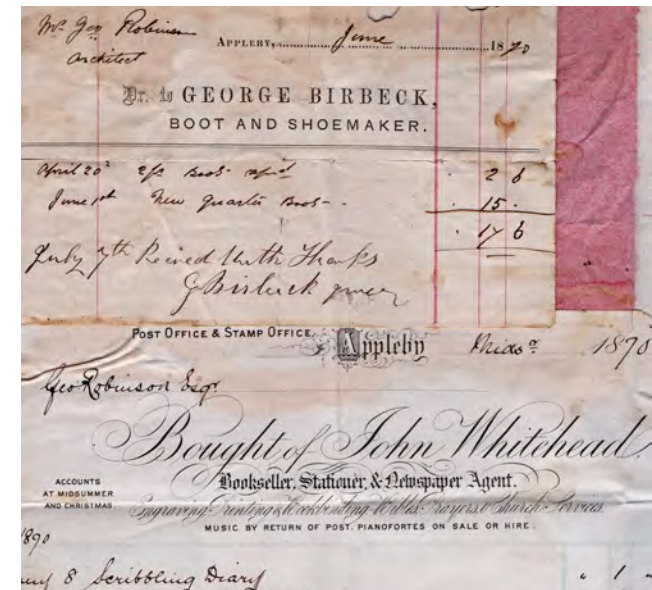 Mr Geo Robinson
Architect
APPLEBY, June 1870
Dr. to GEORGE BIRBECK,
BOOT AND SHOEMAKER.
April 20 2 6
June 1st New quarter Boots - 15 .
17 6
July 7th Received With Thanks
G Birbeck
POST OFFICE & STAMP OFFICE, Appleby 1870
Geo Robinson Esqr.
Bought of John Whitehead,
Bookseller, Stationer, & Newspaper Agent.
ACCOUNTS
AT MIDSUMMER
AND CHRISTMAS.
Engraving, Printing & Bookbinding. Bibles, Prayers & Church Services.
MUSIC BY RETURN OF POST. PIANOFORTES ON SALE OR HIRE.
8 Scribbling Diary " 1 "